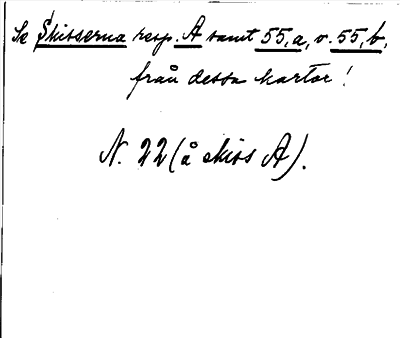 Se Skisserna resp. A samt 55,a, v. 55,b,
från dessa kartor!
N. 22 (å skiss A).